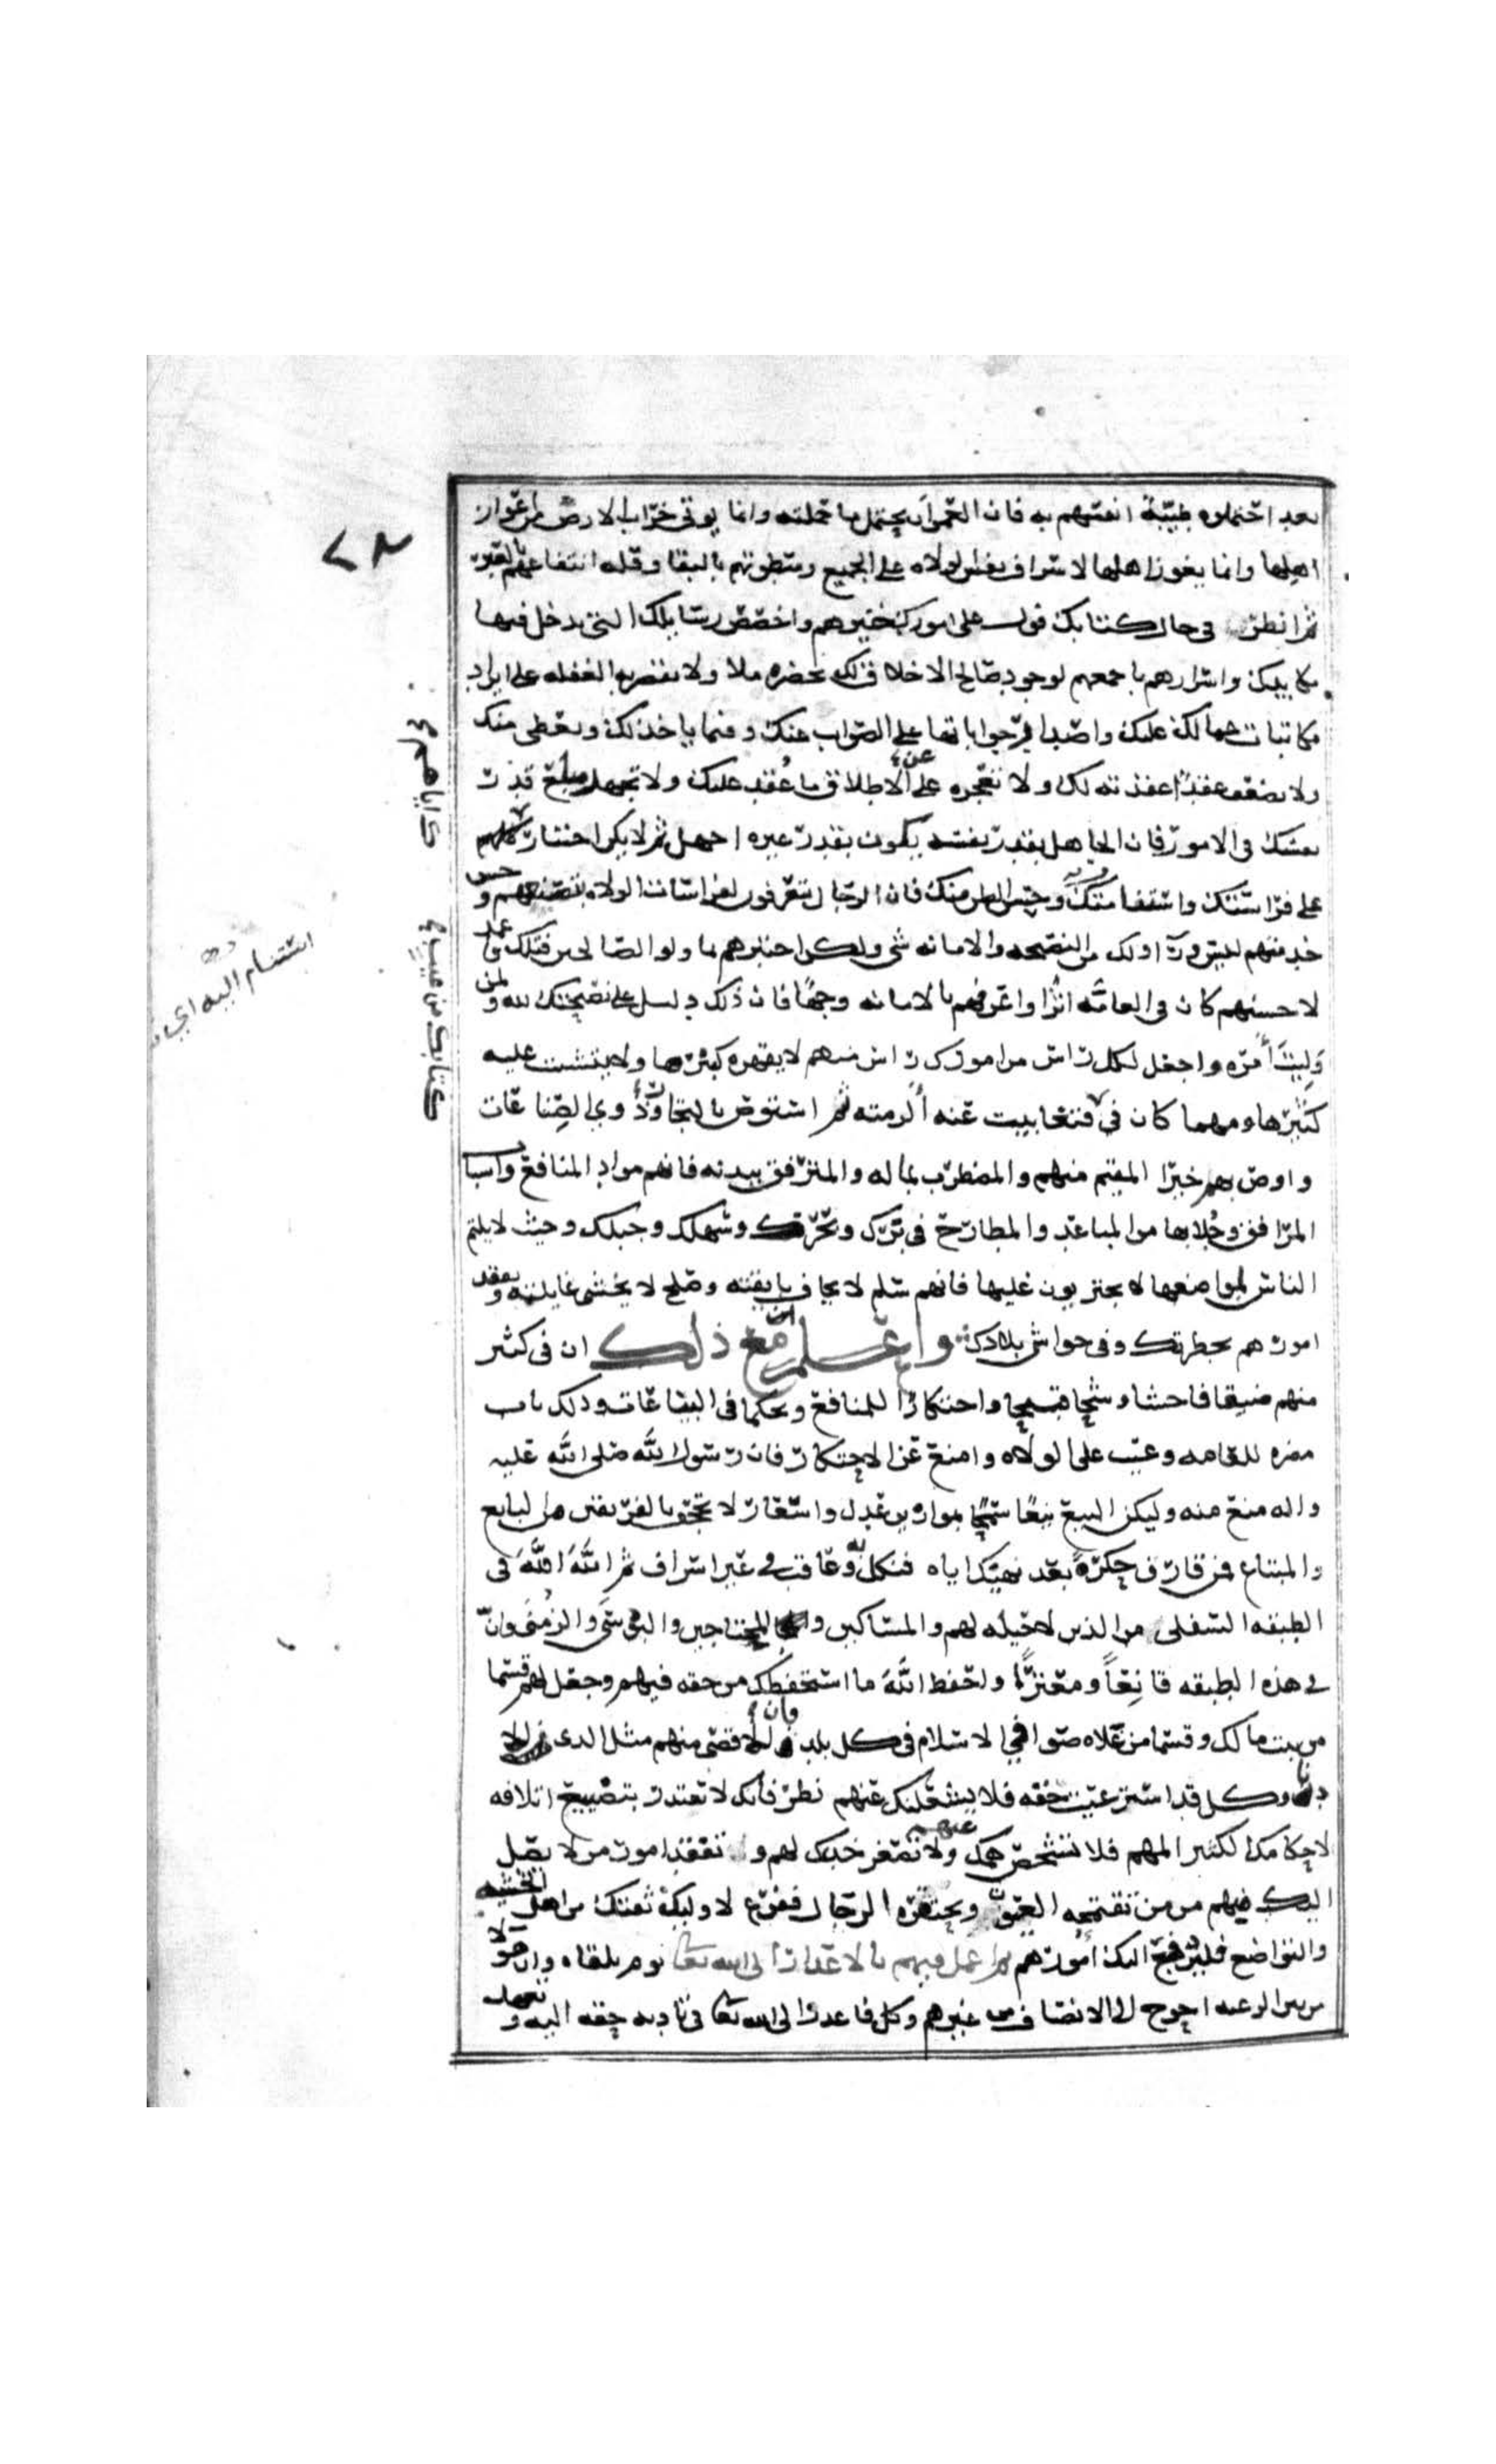 بعد احتملوه طيبة انفسهم به فان العمران يحتمل ما حملته وانما يوتى خراب الارض من اعواز
اهلها وانما يعوز اهلها لاشراف نفس الولاه على الجمع وسظونهم بالبقا وقله انتفاعهم بالعبر
ثم انظر في حال كتابك فول على امورك خيرهم واخصص رسايلك التي تدخل فيها
مكايدك واسرارهم باجمعهم لوجود صالح الاخلاق لك بحضره ملا ولا تقصر به الغفله على ايراد
مكاتبات عمالك عليك واصدار جواباتها على الصواب عنك وفيما ياخذ لك ويعطى منك
ولا يضعف عقدا عقدته لك ولا تعجزه على الاطلاق ما عقد عليك ولا تجهل مبلغ قدر
نفسك في الامور فان الجاهل بقدر نفسه يكون بقدر غيره اجهل ثم لا يكن اختيارك لهم
على فراستك واستقامتك وحسن الظن منك فان الرجال يتعرفون لفراسات الولاه بتصنعهم وحسن
خدمتهم ليس ورآ ذلك من النصيحه والامانه شي ولكن اختبرهم بما ولوا الصالحين قبلك فاعمد
لاحسنهم كان في العامه اثرا واعرفهم بالامانه وجها فان ذلك دليل على نصيحتك لله ولمن
وليت أمره واجعل لكل راس من امورك راس منهم لا يقهره كبيرها ولا يتشتت عليه
كثيرها ومهما كان في فتغابيت عنه ألزمته ثم استوص بالتجار وذوي الصناعات
واوص بهم خيرا المقيم منهم والمضطرب بماله والمترفق ببدنه فانهم مواد المنافع واسباب
المرافق وجلابها من المباعد والمطارح في برك وبحرك وسهلك وجبلك وحيث لا يلتئم
الناس لمواضعها ولا يجتريون عليها فانهم سلم لا يخاف بايقته وصلح لا يخشى غايلته وتفقد
امورهم بحضرتك وفي حواشي بلادك واعلم مع ذلك ان في كثير
منهم ضيقا فاحشا وشحا قبيحا واحتكارا للمنافع وتحكما في البياعات وذلك باب
مضره للعامه وعيب على الولاه وامنع عن الاحتكار فان رسول الله صلى الله عليه
واله منع منه وليكن البيع بيعا سمحا بموازين عدل واسعار لا تجحف بالفريقين من البايع
والمبتاع فمن قارف حكرة بعد نهيك اياه فنكل به وعاقب في غير اسراف ثم الله الله في
الطبقه السفلى من الذين لا حيله لهم والمساكين والمحتاجين والبوسى والزمنى وان
في هذه الطبقه قانعا ومعترا ولتحفظ الله ما استحفظك من حقه فيهم وجعل لهم قسما
من بيت مالك وقسما من غلاه صوافي الاسلام في كل بلد فان للاقصى منهم مثل الذي للا
دنا وكل قد استرعيت حقه فلا يشغلنك عنهم نظر فانك لا تعتذر بتضييع اتلافه
لاحكامك الكثير المهم فلا تشخص همك عنهم ولا تصعر خدك لهم و تفقد امور من لا يصل
اليك فيهم من من تقتحمه العيون ويحتقره الرجال ففرغ لاوليك ثقتك من اهل الخشيه
والتواضع فليرفع اليك امورهم ثم اعمل فيهم بالاعذار الى الله تعا يوم يلقاه وان هولا
من بين الرعيه احوج الى الانصاف من غيرهم وكل فاعذر الى الله تعا في تاديه حقه اليه وتعهد
٧٢
كتابك من عيب ع
ك اياهم ع
استنام اليه اي